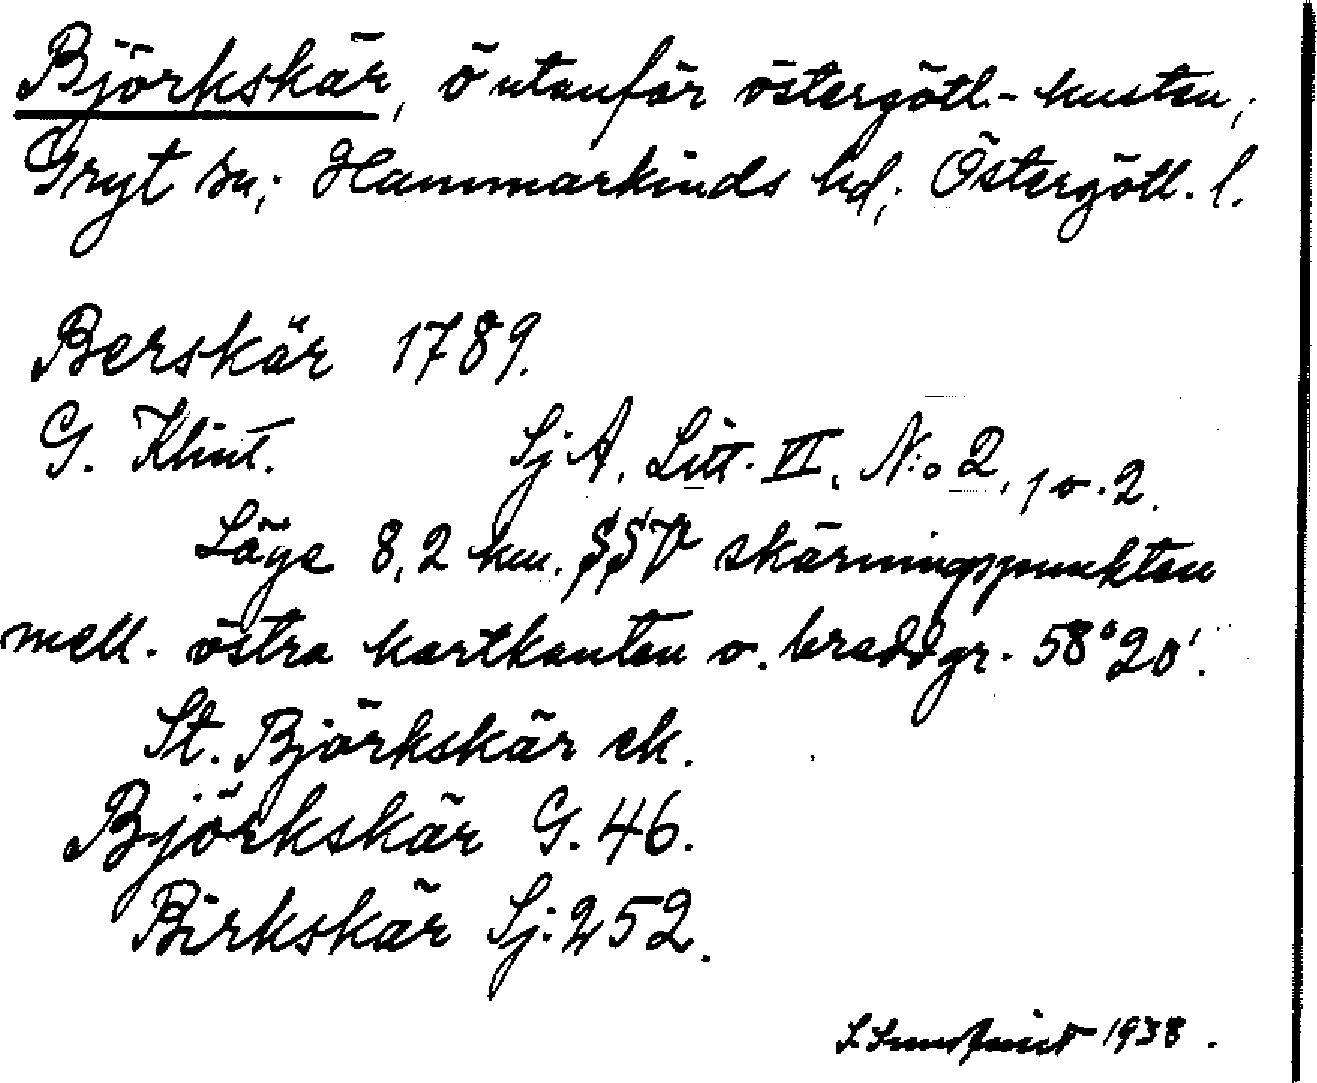 Björkskär, ö utanför östergötl.-kusten,
Gryt sn; Hammarkinds hd; Östergötl. l.
Berskär 1789.
G. Klint. Sj A. Litt. VI. N:o 2, 1 o. 2.
Läge 8,2 km. SSV skärningspunkten
mell. östra kartkanten o. breddgr. 58°20'.
St. Björkskär ek.
Björkskär G. 46.
Birkskär Sj: 252.
1938.